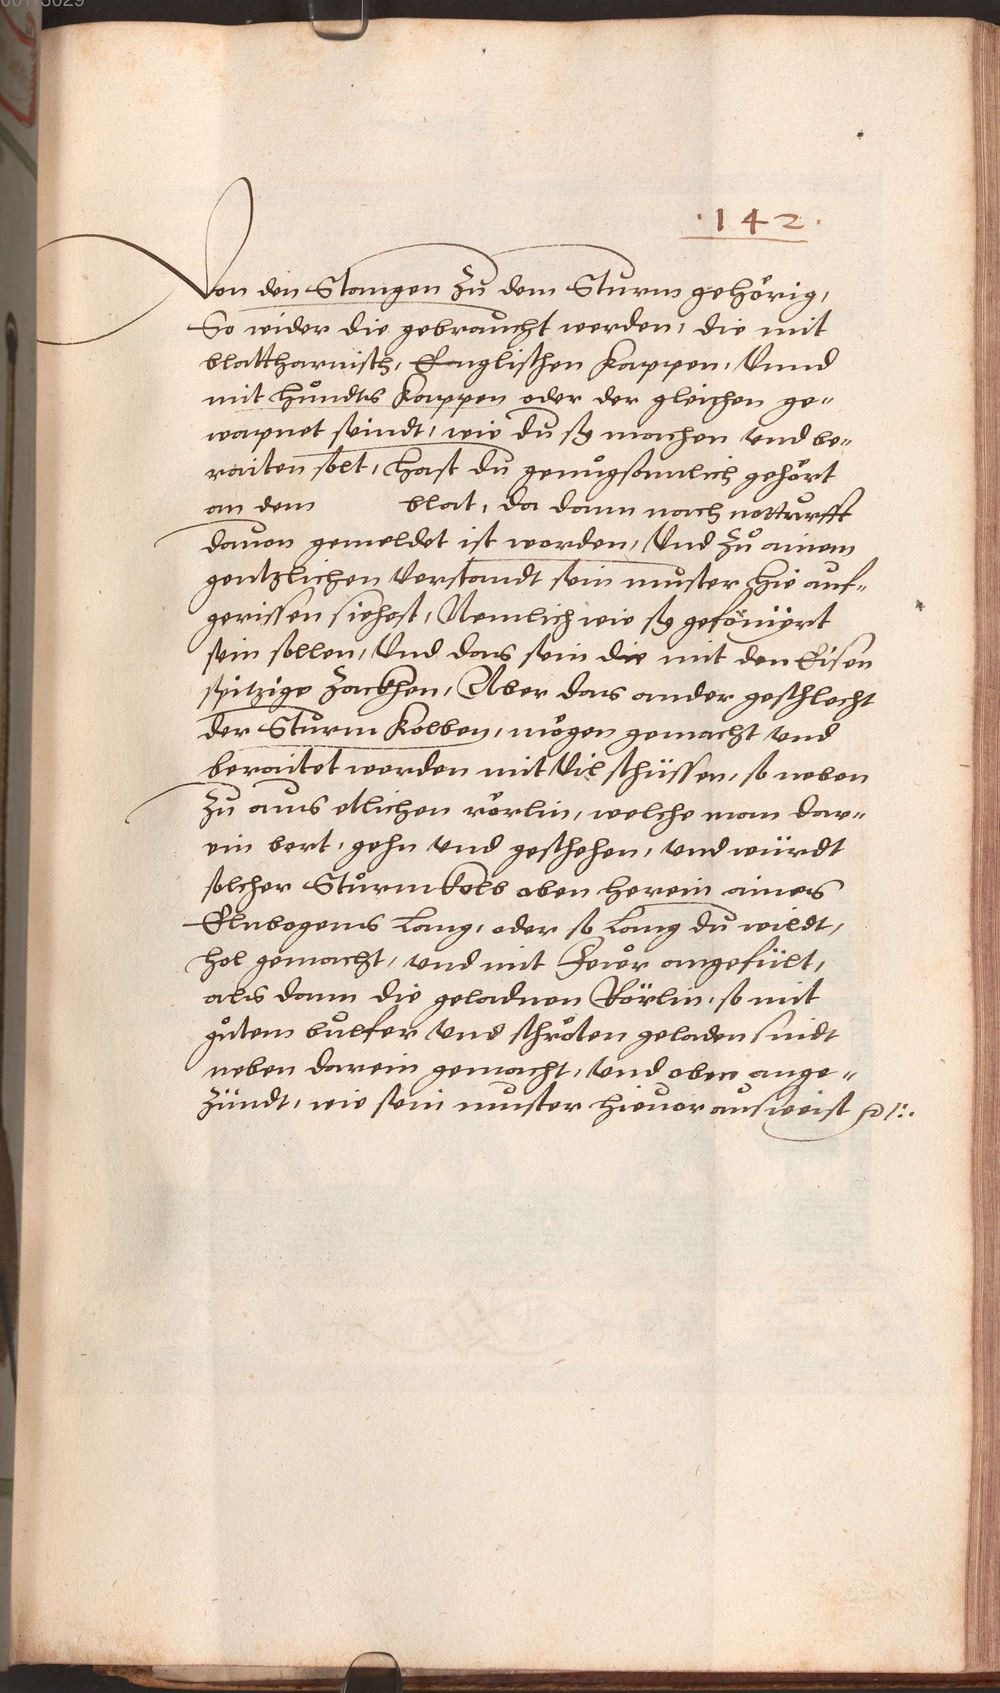 ·142·
Von den Stangen zů dem Sturm gehörig,
So wider die gebraucht werden, die mit
blattharnisch, Englischen Kappen, Vnnd
mit hundts Kappen oder der gleichen ge-
wapnet seindt, wie du sy machen vnd be-
raiten solt, hast du genůgsamlich gehört
an dem blat, da dann nach notturfft
dauon gemeldet ist worden, Vnd zů ainem
gentzlichen Verstandt sein muster hie auf-
gerissen siehest, Nemlich wie sy geformiert
sein sollen, Vnd das sein die mit den Eisen
spitzige Zackhen, Aber das ander geschlecht
der Sturm Kolben, mögen gemacht vnd
beraitet werden mit Vil schüssen, so neben
zů aus etlichen rörlin, welche man dar-
ein bort, gehn vnd geschehen, vnd würdt
solcher Sturmkolb oben herein aines
Elnbogens lang, oder so lang du wildt,
hol gemacht, vnd mit Feur angefült,
als dann die geladnen Rörlin, so mit
gůtem bulfer vnd schröten geladen sindt
neben darein gemacht, vnd oben ange-
zündt, wie sein muster hieuor ausweist